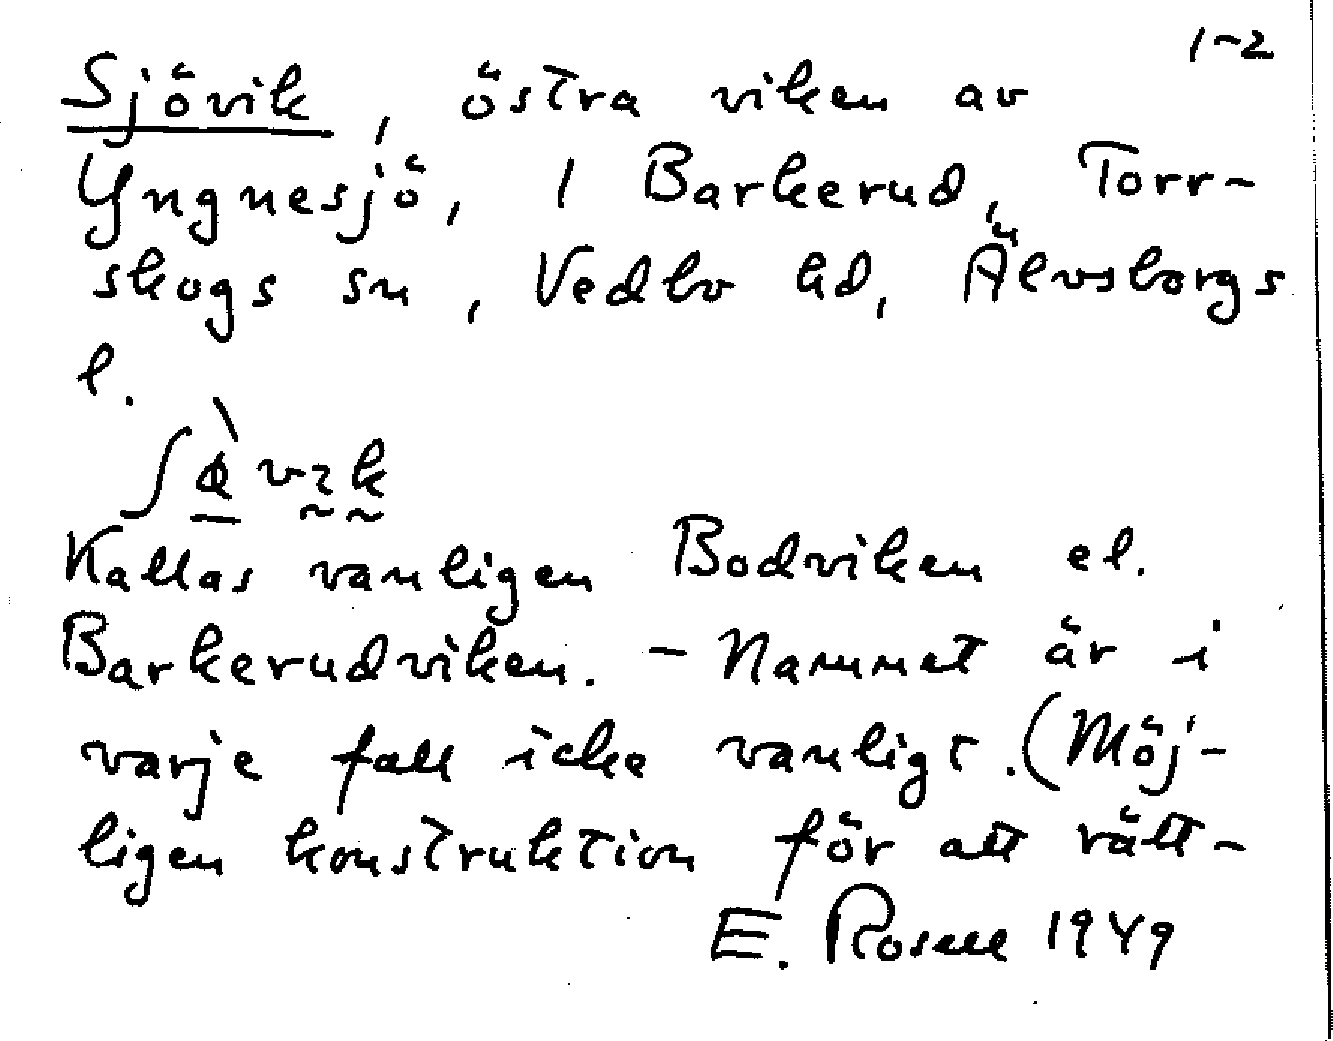 1-2
Sjövik, östra viken av
Yngnesjö, 1 Barkerud, Torr-
skogs sn, Vedbo hd, Älvsborgs
l.
Kallas vanligen Bodviken el.
Barkerudviken. - Namnet är i
varje fall icke vanligt. (Möj-
ligen konstruktion för att rätt-
E. Rosell 1949